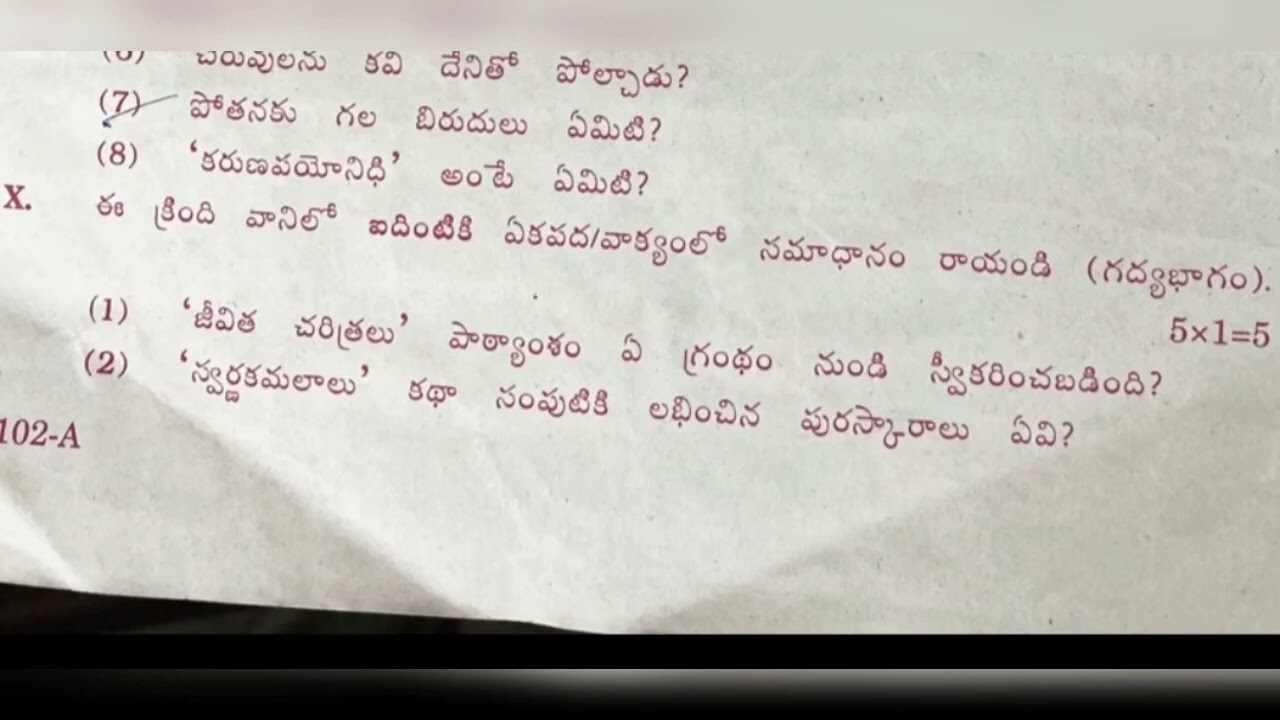 (6) చెరువులను కవి దేనితో పోల్చాడు?
(7) పోతనకు గల బిరుదులు ఏమిటి?
(8) 'కరుణపయోనిధి' అంటే ఏమిటి?
X. ఈ క్రింది వానిలో ఐదింటికి ఏకపద/వాక్యంలో సమాధానం రాయండి (గద్యభాగం).
5×1=5
(1) 'జీవిత చరిత్రలు' పాఠ్యాంశం ఏ గ్రంథం నుండి స్వీకరించబడింది?
(2) 'స్వర్ణకమలాలు' కథా సంపుటికి లభించిన పురస్కారాలు ఏవి?
102-A